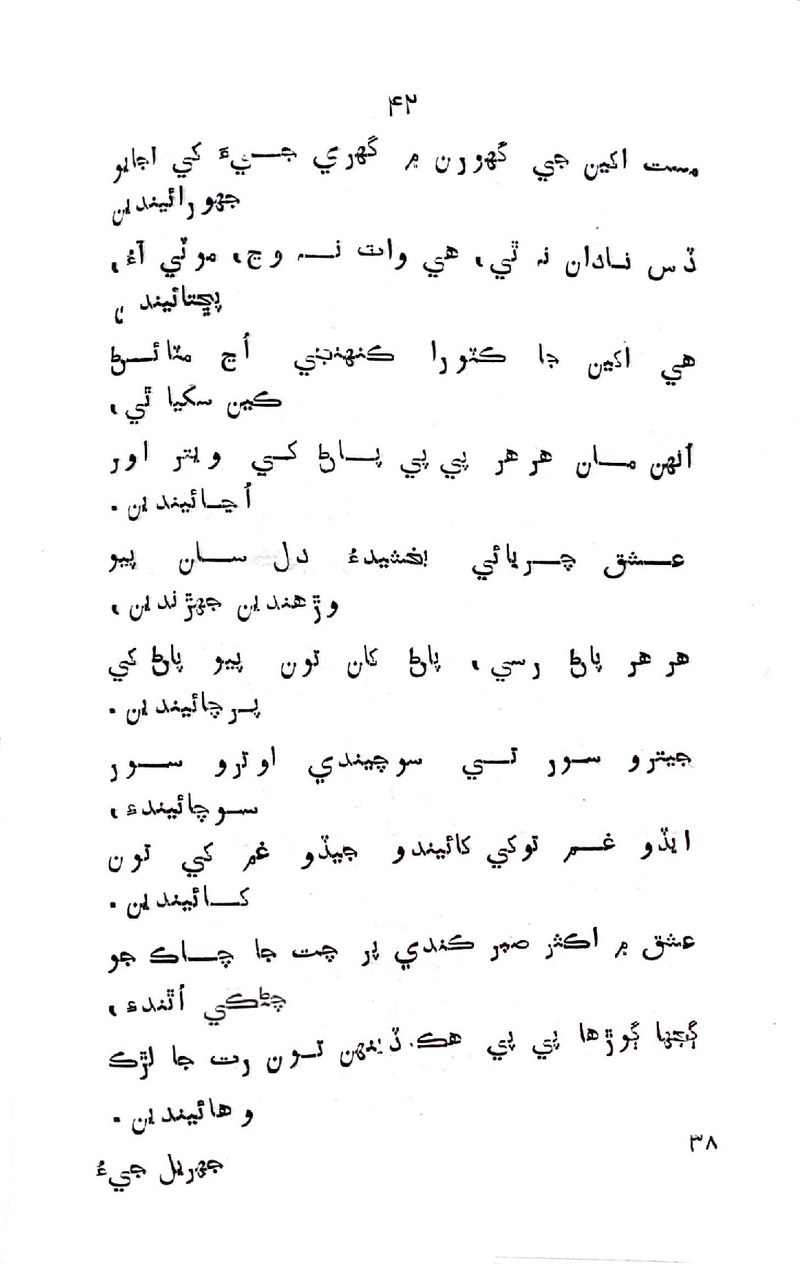 ۴۲
مست اکين جي گهورن ۾ گهري جيءَ کي اجايو
جهورائيندين
ڏس نادان نہ ٿي، هي وات نہ وڃ، موٽي آءُ،
پڇتائيندين
هي اکين جا ڪٽورا ڪنهنجي اُڃ مٽائڻ
ڪين سکيا ٿي،
اُنهن مان هر هر پي پي پاڻ کي ويتر اور
اُڃائيندين .
عشق چريائي بخشيدءُ دل سان پيو
وڙهندين جهڙندين،
هر هر پاڻ رسي، پاڻ کان تون پيو پاڻ کي
پرچائيندين .
جيترو سور تي سوچيندي اوترو سور
سوچائيندءِ،
ايڏو غم توکي کائيندو جيڏو غم کي تون
کائيندين .
عشق ۾ اڪثر صبر ڪندي پر چت جا چاڪ جو
چڻڪي اُٿندءِ،
ڳجها ڳوڙها پي پي هڪ ڏينهن تون رت جا لڙڪ
وهائيندين .
۳۸
جهريل جيءُ